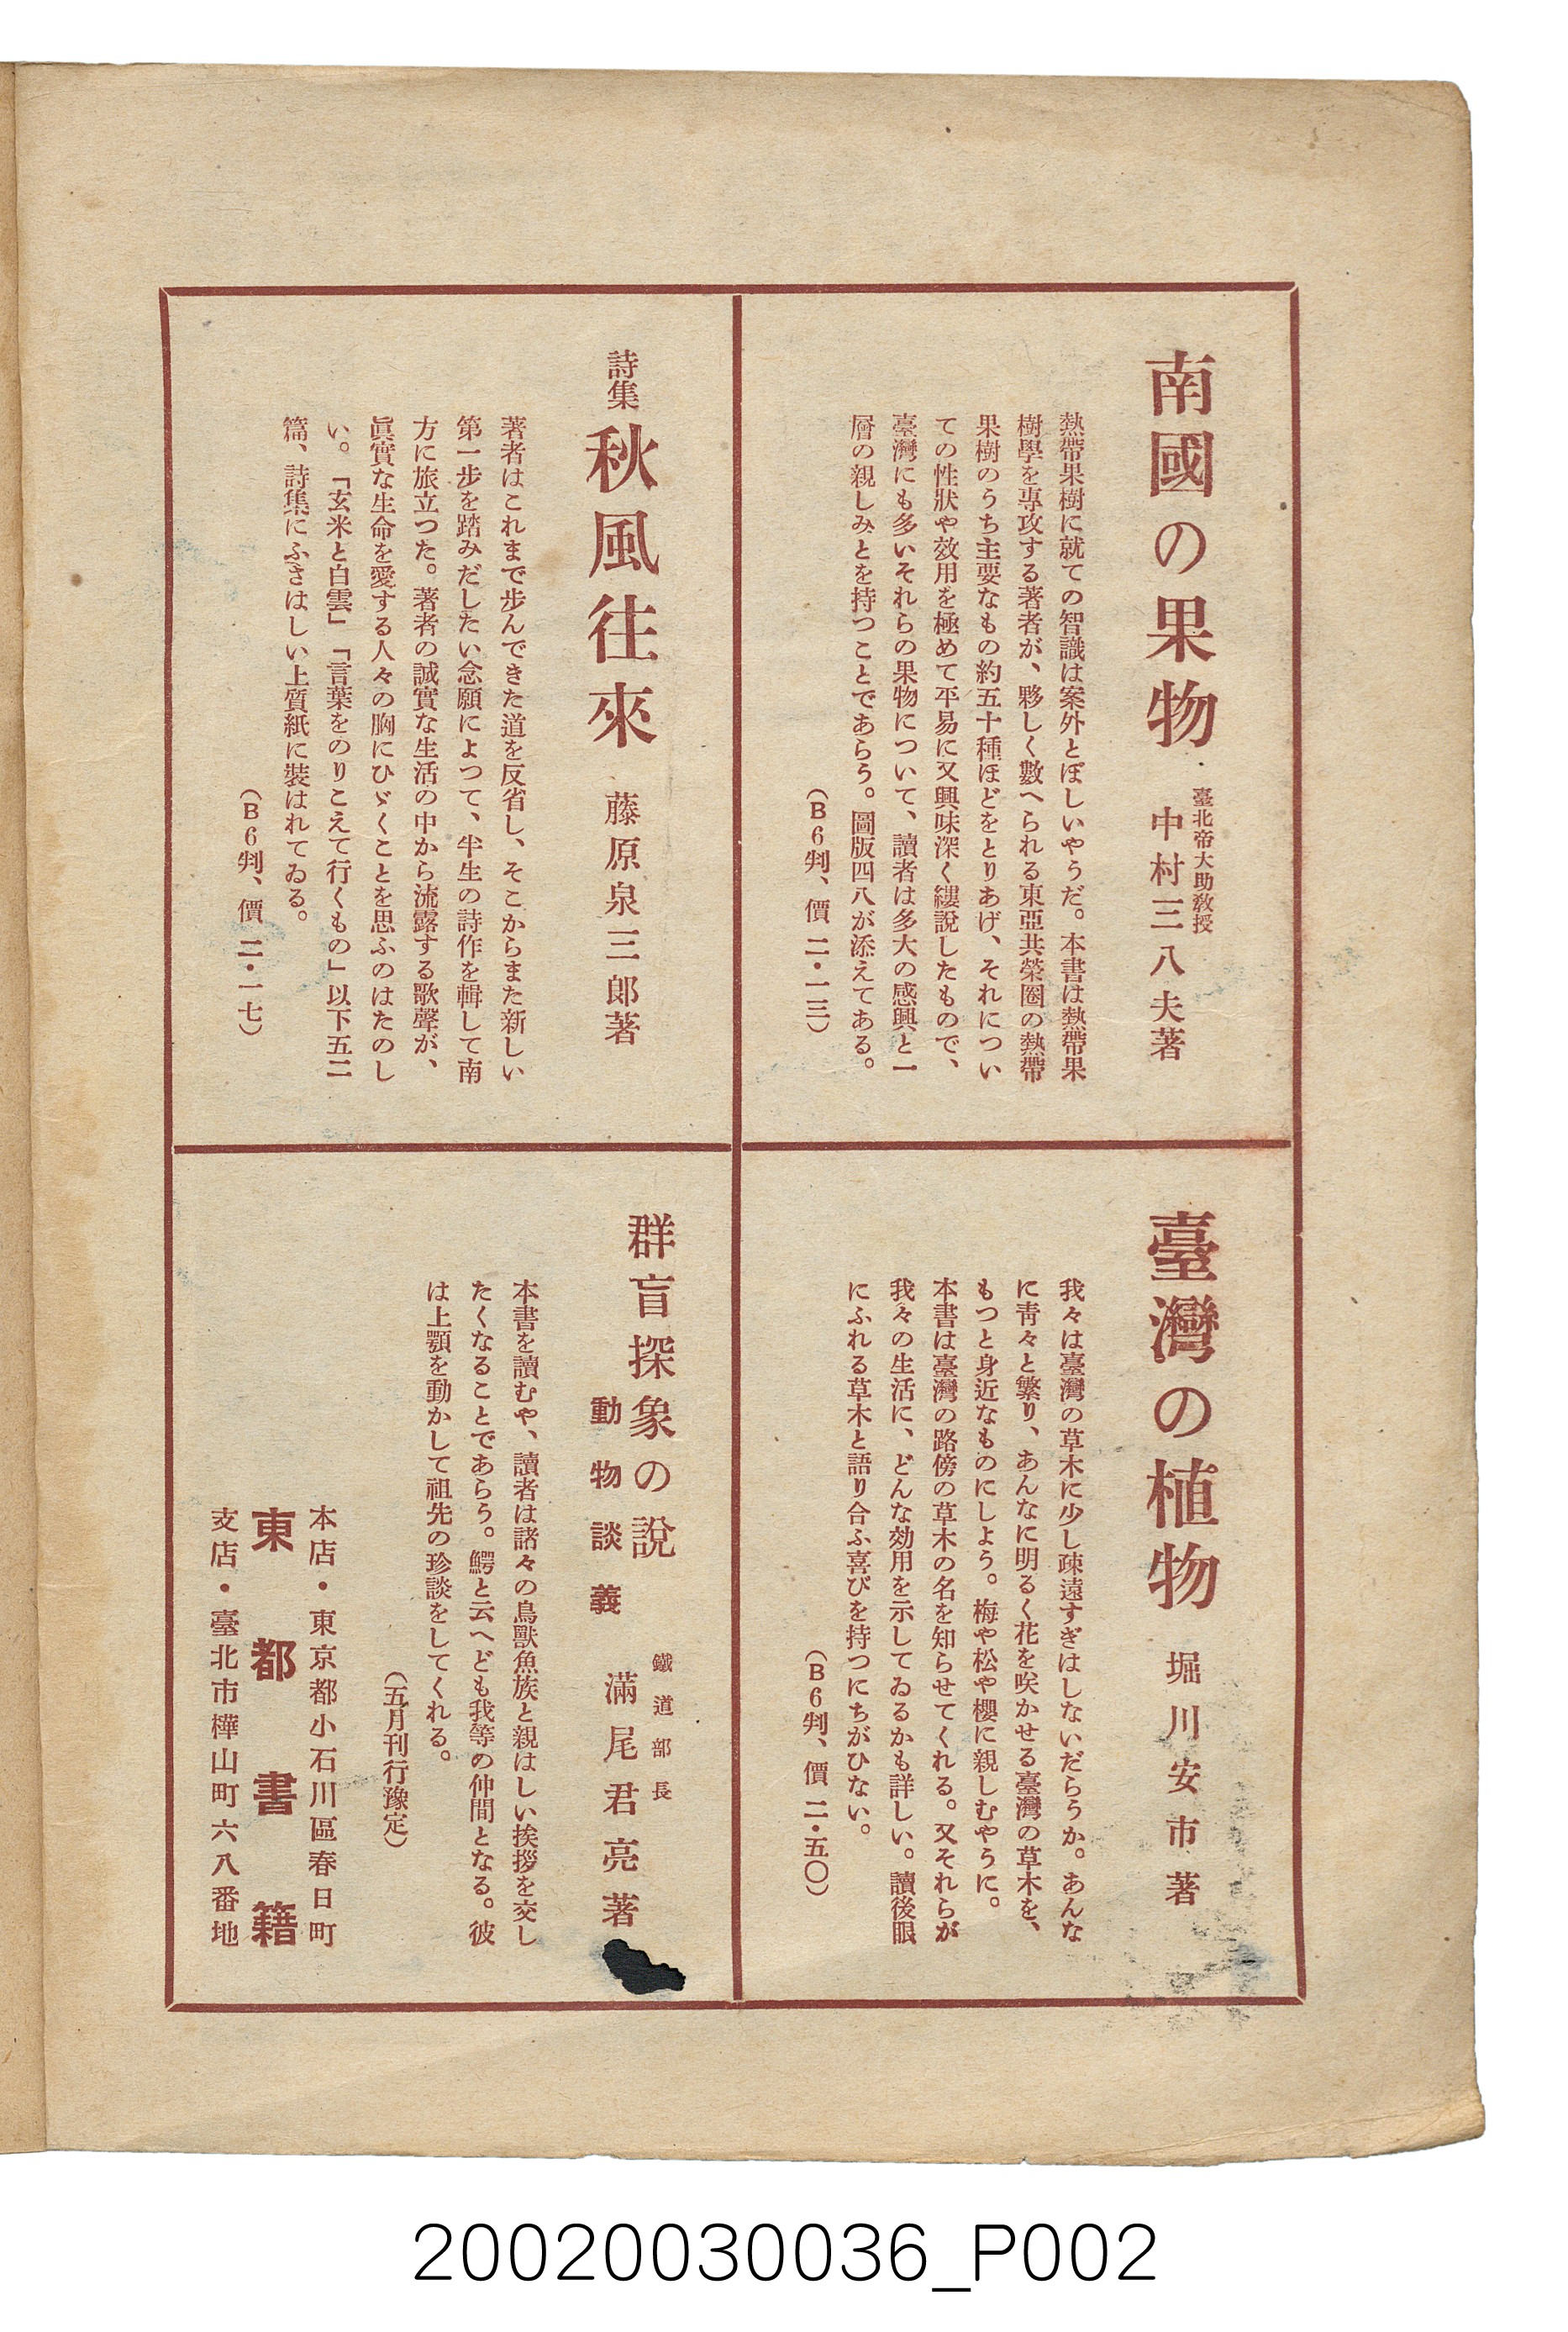 南國の果物
臺北帝大助敎授
中村三八夫著
熱帶果樹に就ての智識は案外とぼしいやうだ。本書は熱帶果
樹學を專攻する著者が、夥しく數へられる東亞共榮圈の熱帶
果樹のうち主要なもの約五十種ほどをとりあげ、それについ
ての性狀や效用を極めて平易に又興味深く縷說したもので、
臺灣にも多いそれらの果物について、讀者は多大の感興と一
層の親しみとを持つことであらう。圖版四八が添えてある。
（B6判、價 二・一三）
臺灣の植物
堀川安市著
我々は臺灣の草木に少し疎遠すぎはしないだらうか。あんな
に靑々と繁り、あんなに明るく花を咲かせる臺灣の草木を、
もつと身近なものにしよう。梅や松や櫻に親しむやうに。
本書は臺灣の路傍の草木の名を知らせてくれる。又それらが
我々の生活に、どんな効用を示してゐるかも詳しい。讀後眼
にふれる草木と語り合ふ喜びを持つにちがひない。
（B6判、價 二・五〇）
詩集 秋風往來
藤原泉三郎著
著者はこれまで步んできた道を反省し、そこからまた新しい
第一步を踏みだしたい念願によつて、半生の詩作を輯して南
方に旅立つた。著者の誠實な生活の中から流露する歌聲が、
眞實な生命を愛する人々の胸にひゞくことを思ふのはたのし
い。「玄米と白雲」「言葉をのりこえて行くもの」以下五二
篇、詩集にふさはしい上質紙に裝はれてゐる。
（B6判、價 二・一七）
群盲探象の說
動物談義
鐵道部長
滿尾君亮著
本書を讀むや、讀者は諸々の鳥獸魚族と親はしい挨拶を交し
たくなることであらう。鰐と云へども我等の仲間となる。彼
は上顎を動かして祖先の珍談をしてくれる。
（五月刊行豫定）
本店・東京都小石川區春日町
東都書籍
支店・臺北市樺山町六八番地
20020030036_P002